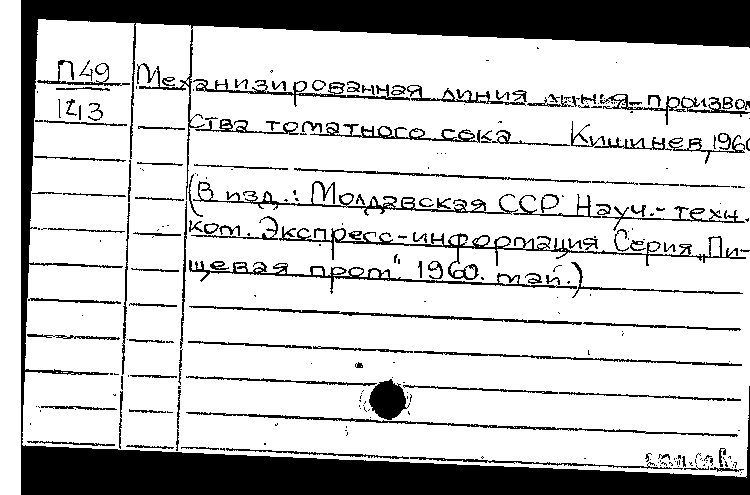 П49
1243
Механизированная линия линия производ
ства томатного сока. Кишинев, 1960
(В изд.: Молдавская ССР. Науч.-техн.
ком. Экспресс-информация. Серия „Пи-
щевая пром“. 1960. май.)